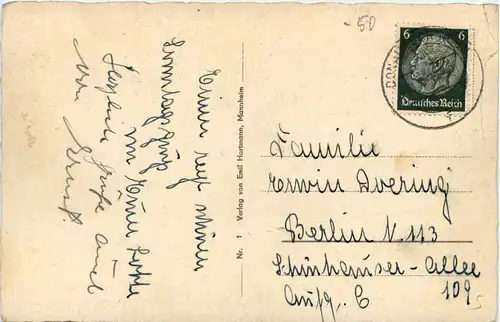 Einen recht schönen
Sonntagsgruß
von Eurer Lotte
Herzliche Grüße auch
von Ernst.
Nr. 1 Verlag von Emil Hartmann, Mannheim
50
6 6
Deutsches Reich
Familie
Erwin Doering
Berlin N 113
Schönhauser-Allee
109
Aufg. C